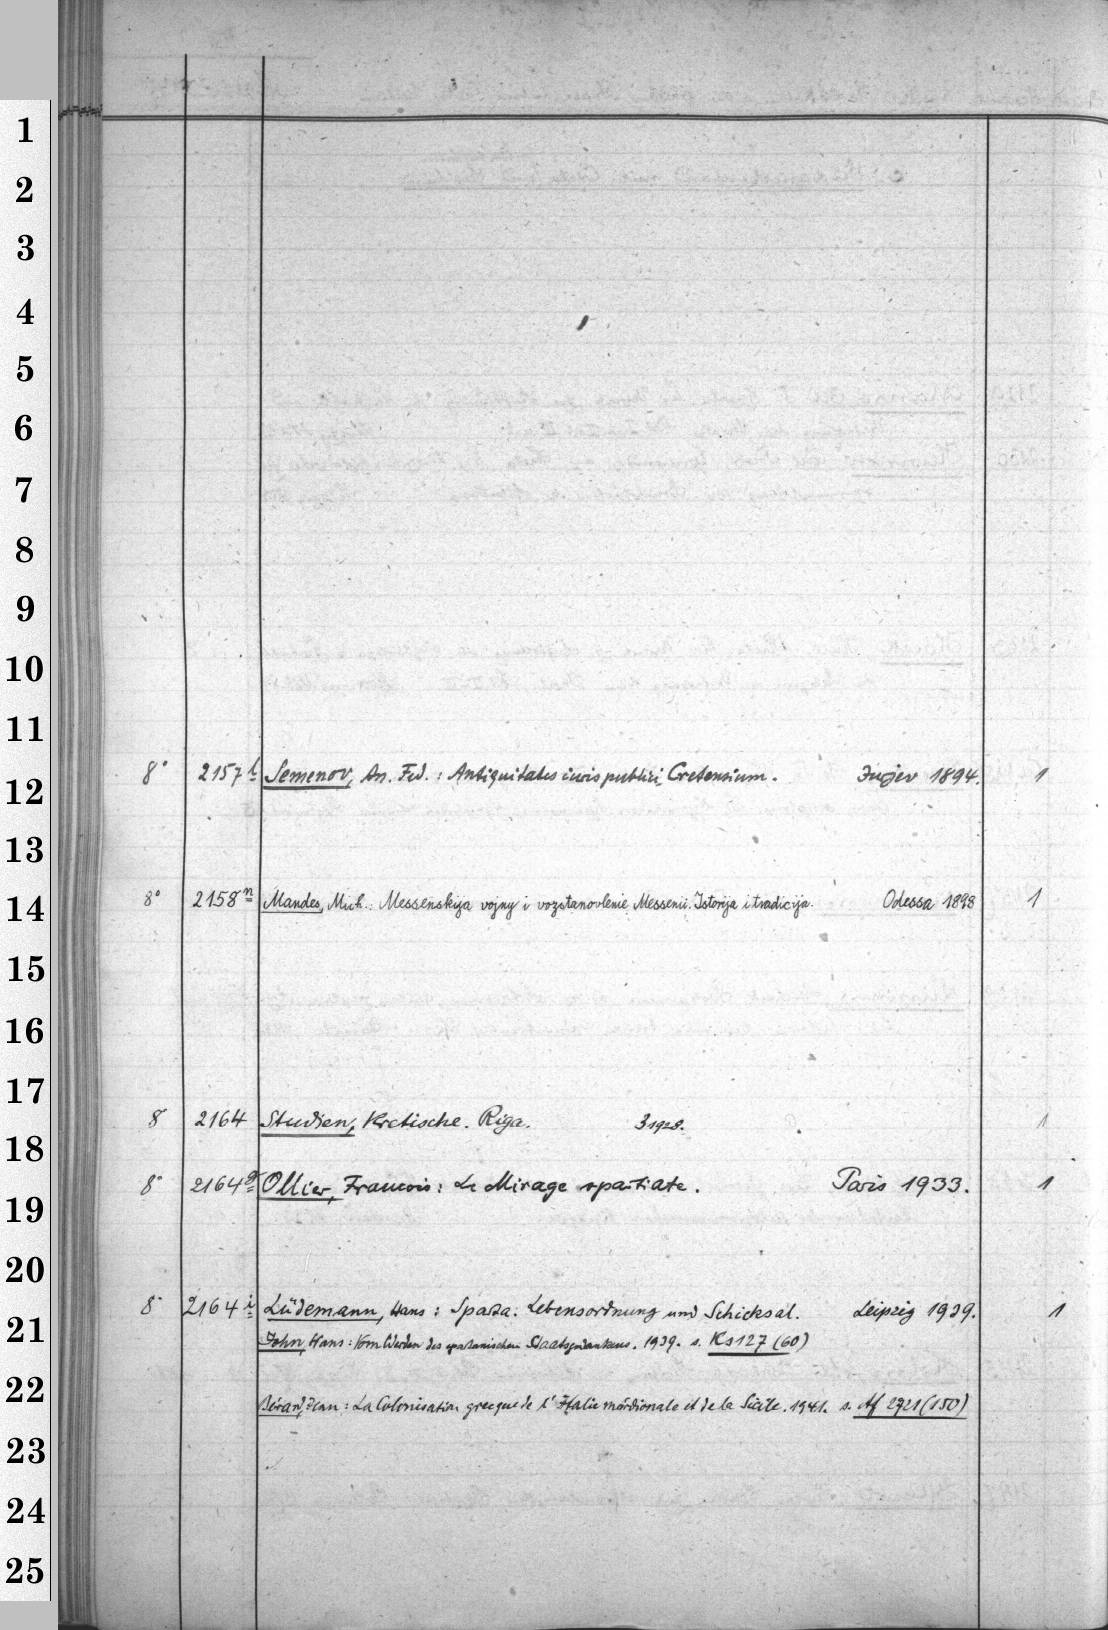 1
2
3
4
5
6
7
8
9
10
11
8° 2157 l Semenov, An. Fed.: Antiquitates iuris publici Cretensium. Jurjev 1894. 1
12
13
8° 2158 n Mandes, Mich.: Messenskija vojny i vozstanovlenie Messenii. Istorija i tradicija. Odessa 1898 1
14
15
16
17
8° 2164 Studien, Kretische. Riga. 3 1928. 1
18
8° 2164 g Ollier, Francois: Le Mirage spartiate. Paris 1933. 1
19
20
8° 2164 i Lüdemann, Hans: Sparta. Lebensordnung und Schicksal. Leipzig 1939. 1
21
John, Hans: Vom Werden des spartanischen Staatsgedankens. 1939. s. Ks 127 (60)
22
Bérard, Jean: La Colonisation grecque de l'Italie méridionale et de la Sicile. 1941. s. Af 2921 (150)
23
24
25